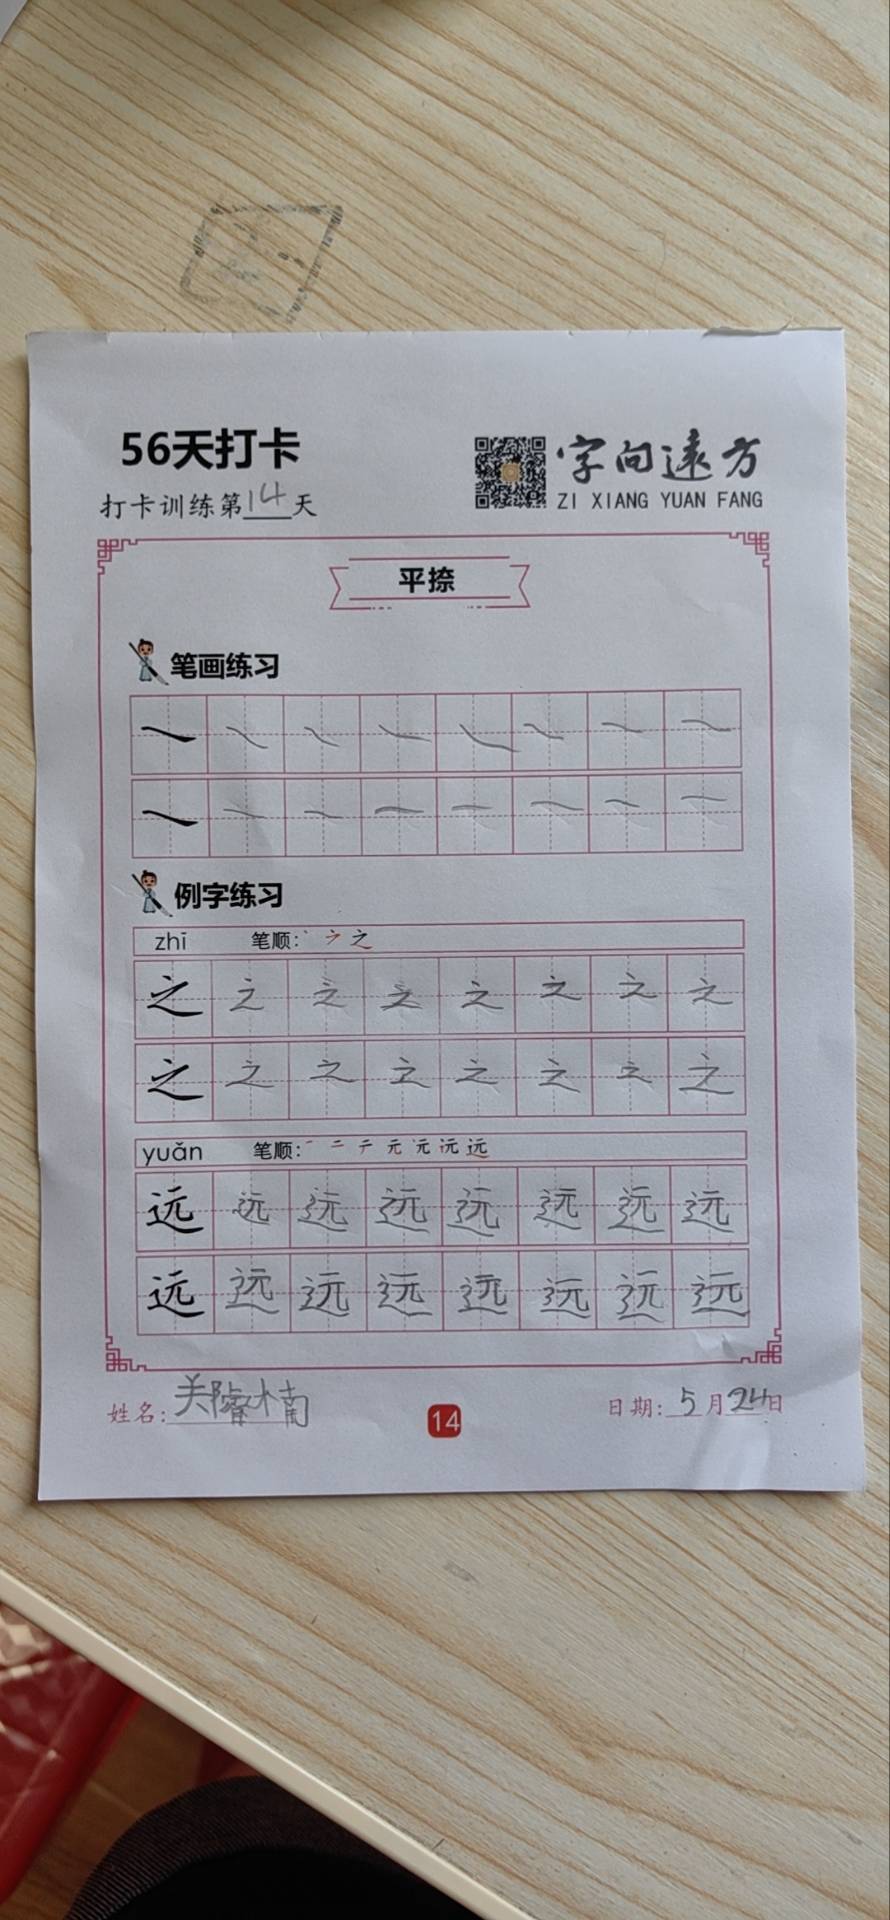 56天打卡
字向远方
打卡训练第14天
ZI XIANG YUAN FANG
平捺
笔画练习
例字练习
zhī 笔顺: 丶 ㇇ 之
之 之 之 之 之 之 之 之
之 之 之 之 之 之 之 之
yuǎn 笔顺: 一 二 テ 元 元 远 远
远 远 远 远 远 远 远 远
远 远 远 远 远 远 远 远
姓名: 关睿楠
14
日期: 5月24日